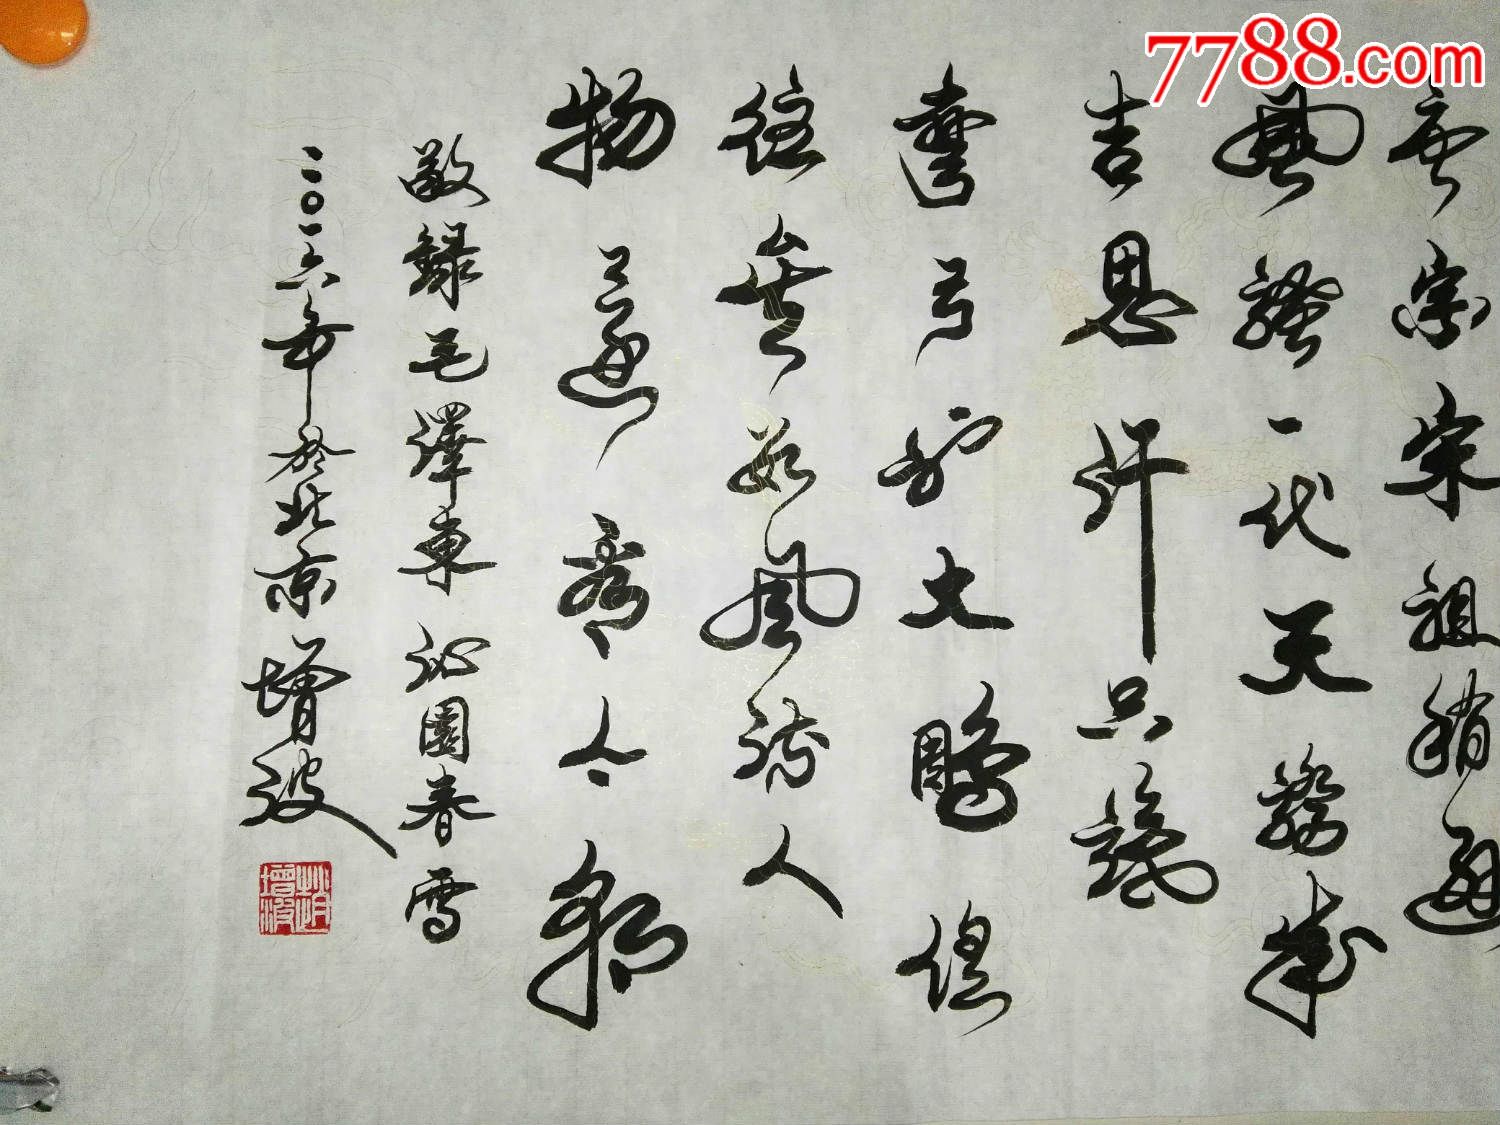 7788.com
唐宗宋祖稍遜
風騷一代天驕成
吉思汗只識
彎弓射大鵰俱
往矣數風流人
物還看今朝
敬錄毛澤東沁園春雪
二〇一六年於北京增波
趙增波